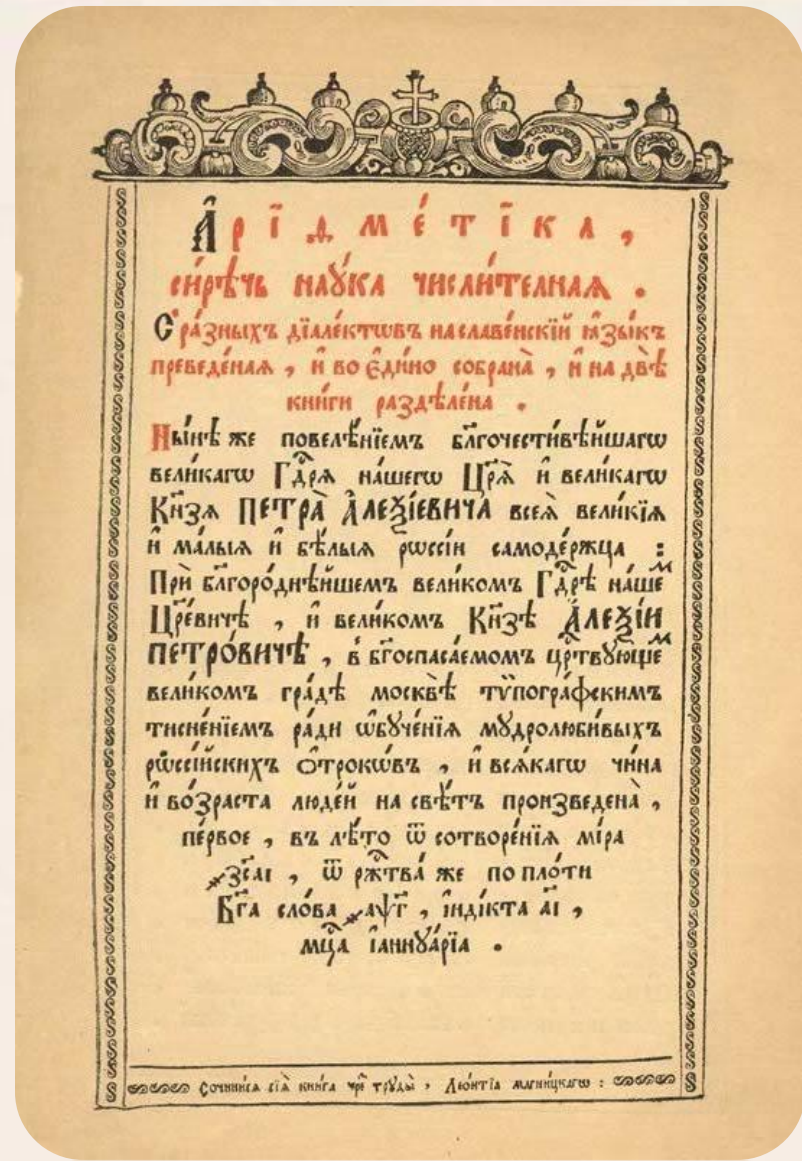 А҆рїѳме́тїка,
си́рѣчь наꙋ́ка числи́телнаѧ.
С̾ ра́зныхъ дїале́ктѡвъ на славе́нскїй ѧ҆зы́къ
преведе́наѧ, и҆ во є҆ди́но собрана̀, и҆ на двѣ̀
кни́ги раздѣле́на.
Ны́нѣ же повелѣ́нїемъ бл҃гочести́вѣйшагѡ
вели́кагѡ Гдⷭ҇рѧ на́шегѡ Цр҃ѧ̀ и҆ вели́кагѡ
Кн҃зѧ ПЕТРА̀ А҆ЛЕѮІ́ЕВИЧА всеѧ̀ вели́кїѧ
и҆ ма́лыѧ и҆ бѣ́лыѧ рѡссі́и самоде́ржца :
Прѝ бл҃горо́днѣйшемъ вели́комъ Гдⷭ҇рѣ на́шеⷨ
Цр҃е́вичѣ, и҆ вели́комъ Кн҃зѣ А҆ЛЕѮІ́И
ПЕТРО́ВИЧѢ, в̾ бг҃оспаса́емомъ црⷭ҇твꙋющеⷨ
вели́комъ гра́дѣ москвѣ̀ тѷпогра́фскимъ
тисне́нїемъ ра́ди ѡ҆бꙋче́нїѧ мꙋдролюби́выхъ
рѡссі́йскихъ ѻ҆́трокѡвъ, и҆ всѧ́кагѡ чи́на
и҆ во́зраста люде́й на свѣ́тъ произведена̀,
пе́рвое, въ лѣ́то ѿ сотворе́нїѧ мі́ра
҂зс҃аі, ѿ ржⷭ҇тва́ же по пло́ти
Бг҃а сло́ва ҂аѱ҃г, і҆нді́кта а҃і,
мцⷭ҇а і҆аннꙋа́рїа.
Сочини́сѧ сїѧ̀ кни́га чреⷥ трꙋды̀, Лео́нтїа магни́цкагѡ :